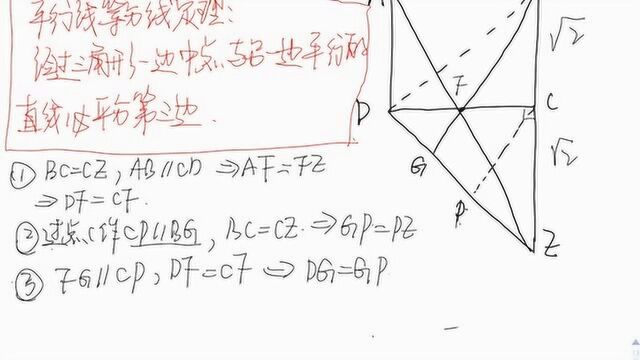 平行线等分线定理:
经过三角形一边中点与另一边平行的
直线必平分第三边.
① BC=CZ, AB∥CD ⇒AF=FZ
⇒ DF=CF.
②过点C作CP∥BG, BC=CZ.⇒GP=PZ
③ FG∥CP, DF=CF ⇒ DG=GP
√2
F
D
C
G
√2
P
Z